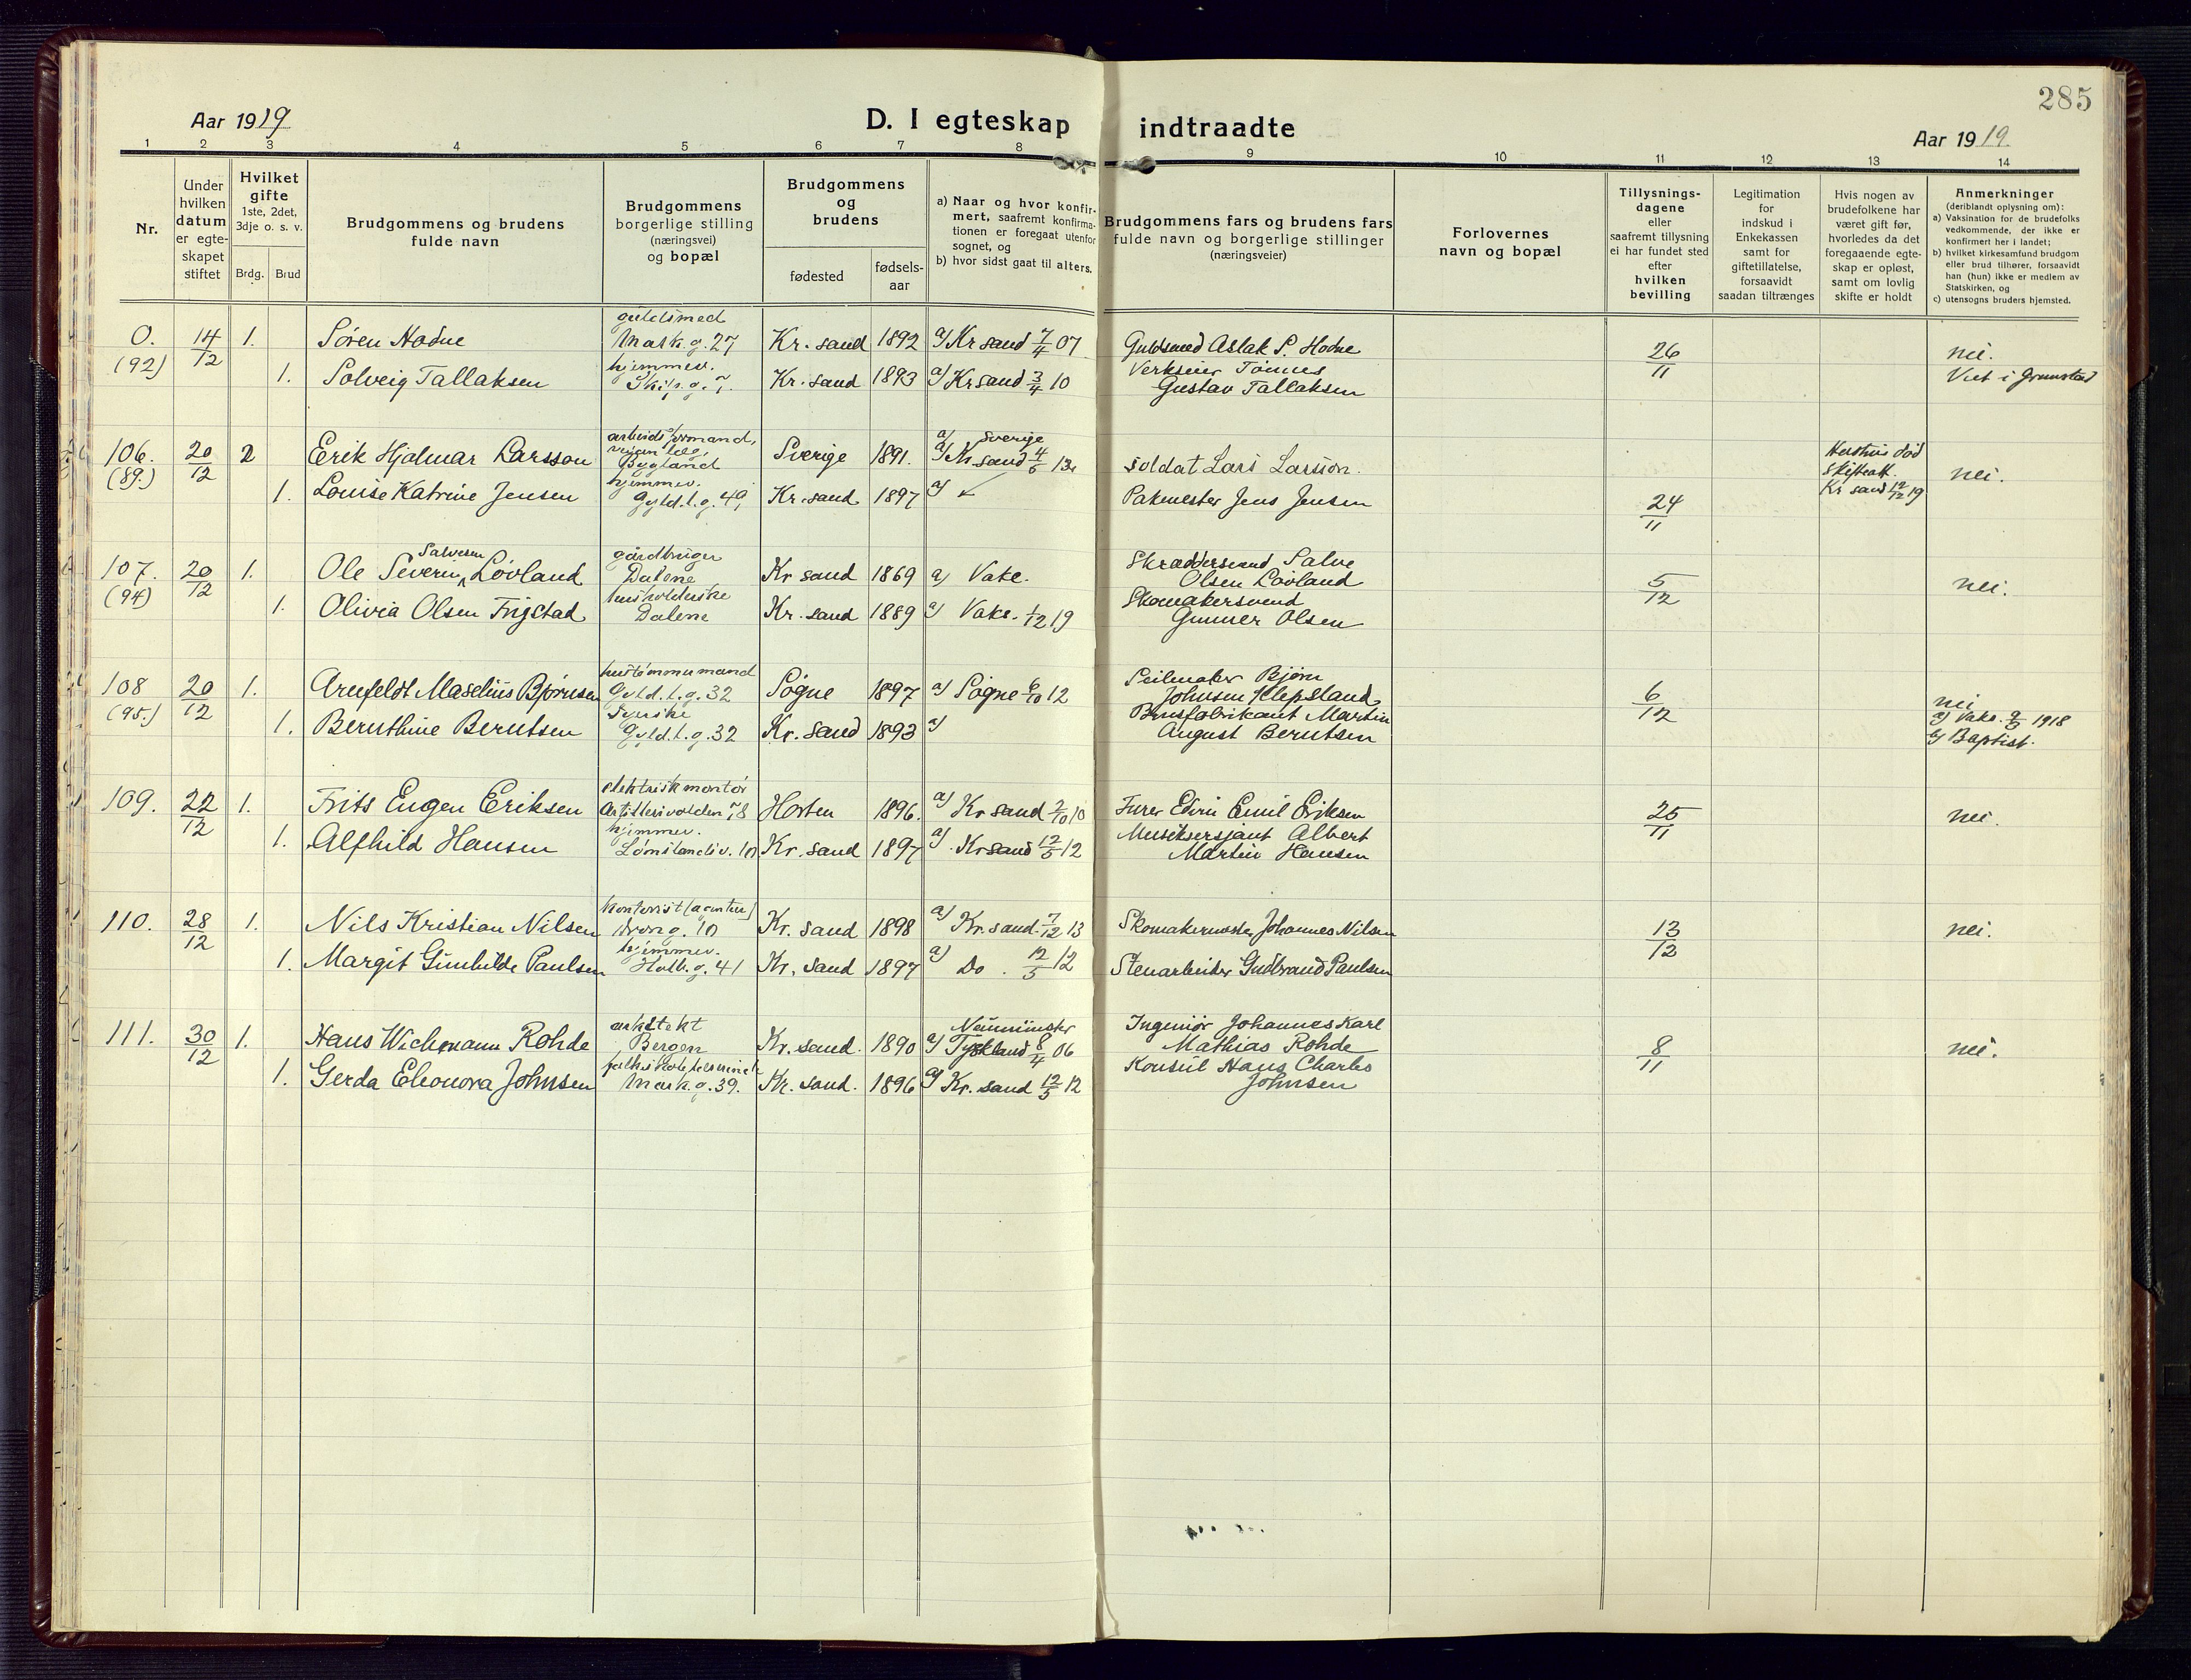 285
Aar 1919
D. I egteskap indtraadte
Aar 1919.
1 2 3 4 5 6 7 8 9 10 11 12 13 14
Nr.
Under hvilken datum er egte-skapet stiftet
Hvilket gifte
1ste, 2det, 3dje o. s. v.
Brdg. Brud
Brudgommens og brudens
fulde navn
Brudgommens
borgerlige stilling
(næringsvei)
og bopæl
Brudgommens
og
brudens
fødested
fødsels-
aar
a) Naar og hvor konfir-
mert, saafremt konfirma-
tionen er foregaat utenfor
sognet, og
b) hvor sidst gaat til alters.
Brudgommens fars og brudens fars
fulde navn og borgerlige stillinger
(næringsveier)
Forlovernes
navn og bopæl
Tillysnings-
dagene
eller
saafremt tillysning
ei har fundet sted
efter
hvilken
bevilling
Legitimation
for
indskud i
Enkekassen
samt for
giftetillatelse,
forsaavidt
saadan tiltrænges
Hvis nogen av
brudefolkene har
været gift før,
hvorledes da det
foregaaende egte-
skap er opløst,
samt om lovlig
skifte er holdt
Anmerkninger
(deriblandt oplysning om):
a) Vaksination for de brudefolks
vedkommende, der ikke er
konfirmert her i landet;
b) hvilket kirkesamfund brudgom
eller brud tilhører, forsaavidt
han (hun) ikke er medlem av
Statskirken, og
c) utensogns bruders hjemsted.
guldsmed
0. 14/12 1. Søren Hodne Mark.g. 27 Kr. sand 1892 a) Kr sand 7/4 07 Guldsmed Aslak S. Hodne 26/11 nei.
(92) hjemmev. Verkseier Tønnes
1. Solveig Tallaksen Skip.g. 7. Kr. sand 1893 a) Kr sand 3/4 10 Gustav Tallaksen Viet i Grimstad
arbeidsformand, a) Sverige Hustru død
106. 20/12 2 Erik Hjalmar Larsson Bygland Sverige 1891. a) Kr. sand 4/5 13 soldat Lars Larsson. skifteatt. nei.
(89.) hjemmev. Kr sand 12/12 19
1. Louise Katrine Jensen Gyld.l.g. 49 Kr. sand 1897 a) Pakmester Jens Jensen 24/11
Salvesen gårdbruger Skræddersvend Salve
107. 20/12 1. Ole Severin Løvland Dalene Kr sand 1869 a) Vake. Olsen Løvland 5/12 nei.
(94) husholderske Skomakersvend
1. Olivia Olsen Frigstad Dalene Kr. sand 1889 a) Vaks. 1/12 19 Gunner Olsen
hustømmermand Seilmaker Bjørn
108 20/12 1. Arnfeldt Maselius Bjørnsen Gyld.l.g. 32 Søgne 1897 a) Søgne 6/10 12 Johnsen Klepsland 6/12 nei
(95.) Syerske Brusfabrikant Martin a) Vaks. 9/3 1918
1. Bernthine Berntsen Gyld.l.g. 32 Kr. sand 1893 a) August Berntsen b) Baptist.
elektriskmontør
109. 22/12 1. Frits Eugen Eriksen Artillerivolden 78 Horten 1896. a) Kr sand 2/10 10 Furer Edvin Emil Eriksen 25/11 nei.
hjemmev. Musiksersjant Albert
1. Alfhild Hansen Kr. sand 1897 a) Kr sand 12/5 12 Martin Hansen
kontorist (agentur)
110. 28/12 1. Nils Kristian Nilsen Dron.g. 10 Kr. sand 1898 a) Kr. sand 7/12 13 Skomakermester Johannes Nilsen 13/12 nei.
hjemmev.
1. Margit Gunhilde Paulsen Holb.g. 41 Kr. sand 1897 a) Do. 12/5 12 Stenarbeider Gudbrand Paulsen
arkitekt Neumünster Ingeniør Johannes Karl
111. 30/12 1. Hans Wichmann Rohde Bergen Kr. sand. 1890 a) Tyskland 8/4 06 Mathias Rohde 8/11 nei.
Konsul Hans Charles
1. Gerda Eleonora Johnsen Mark.g. 39. Kr. sand. 1896 a) Kr. sand 12/5 12 Johnsen